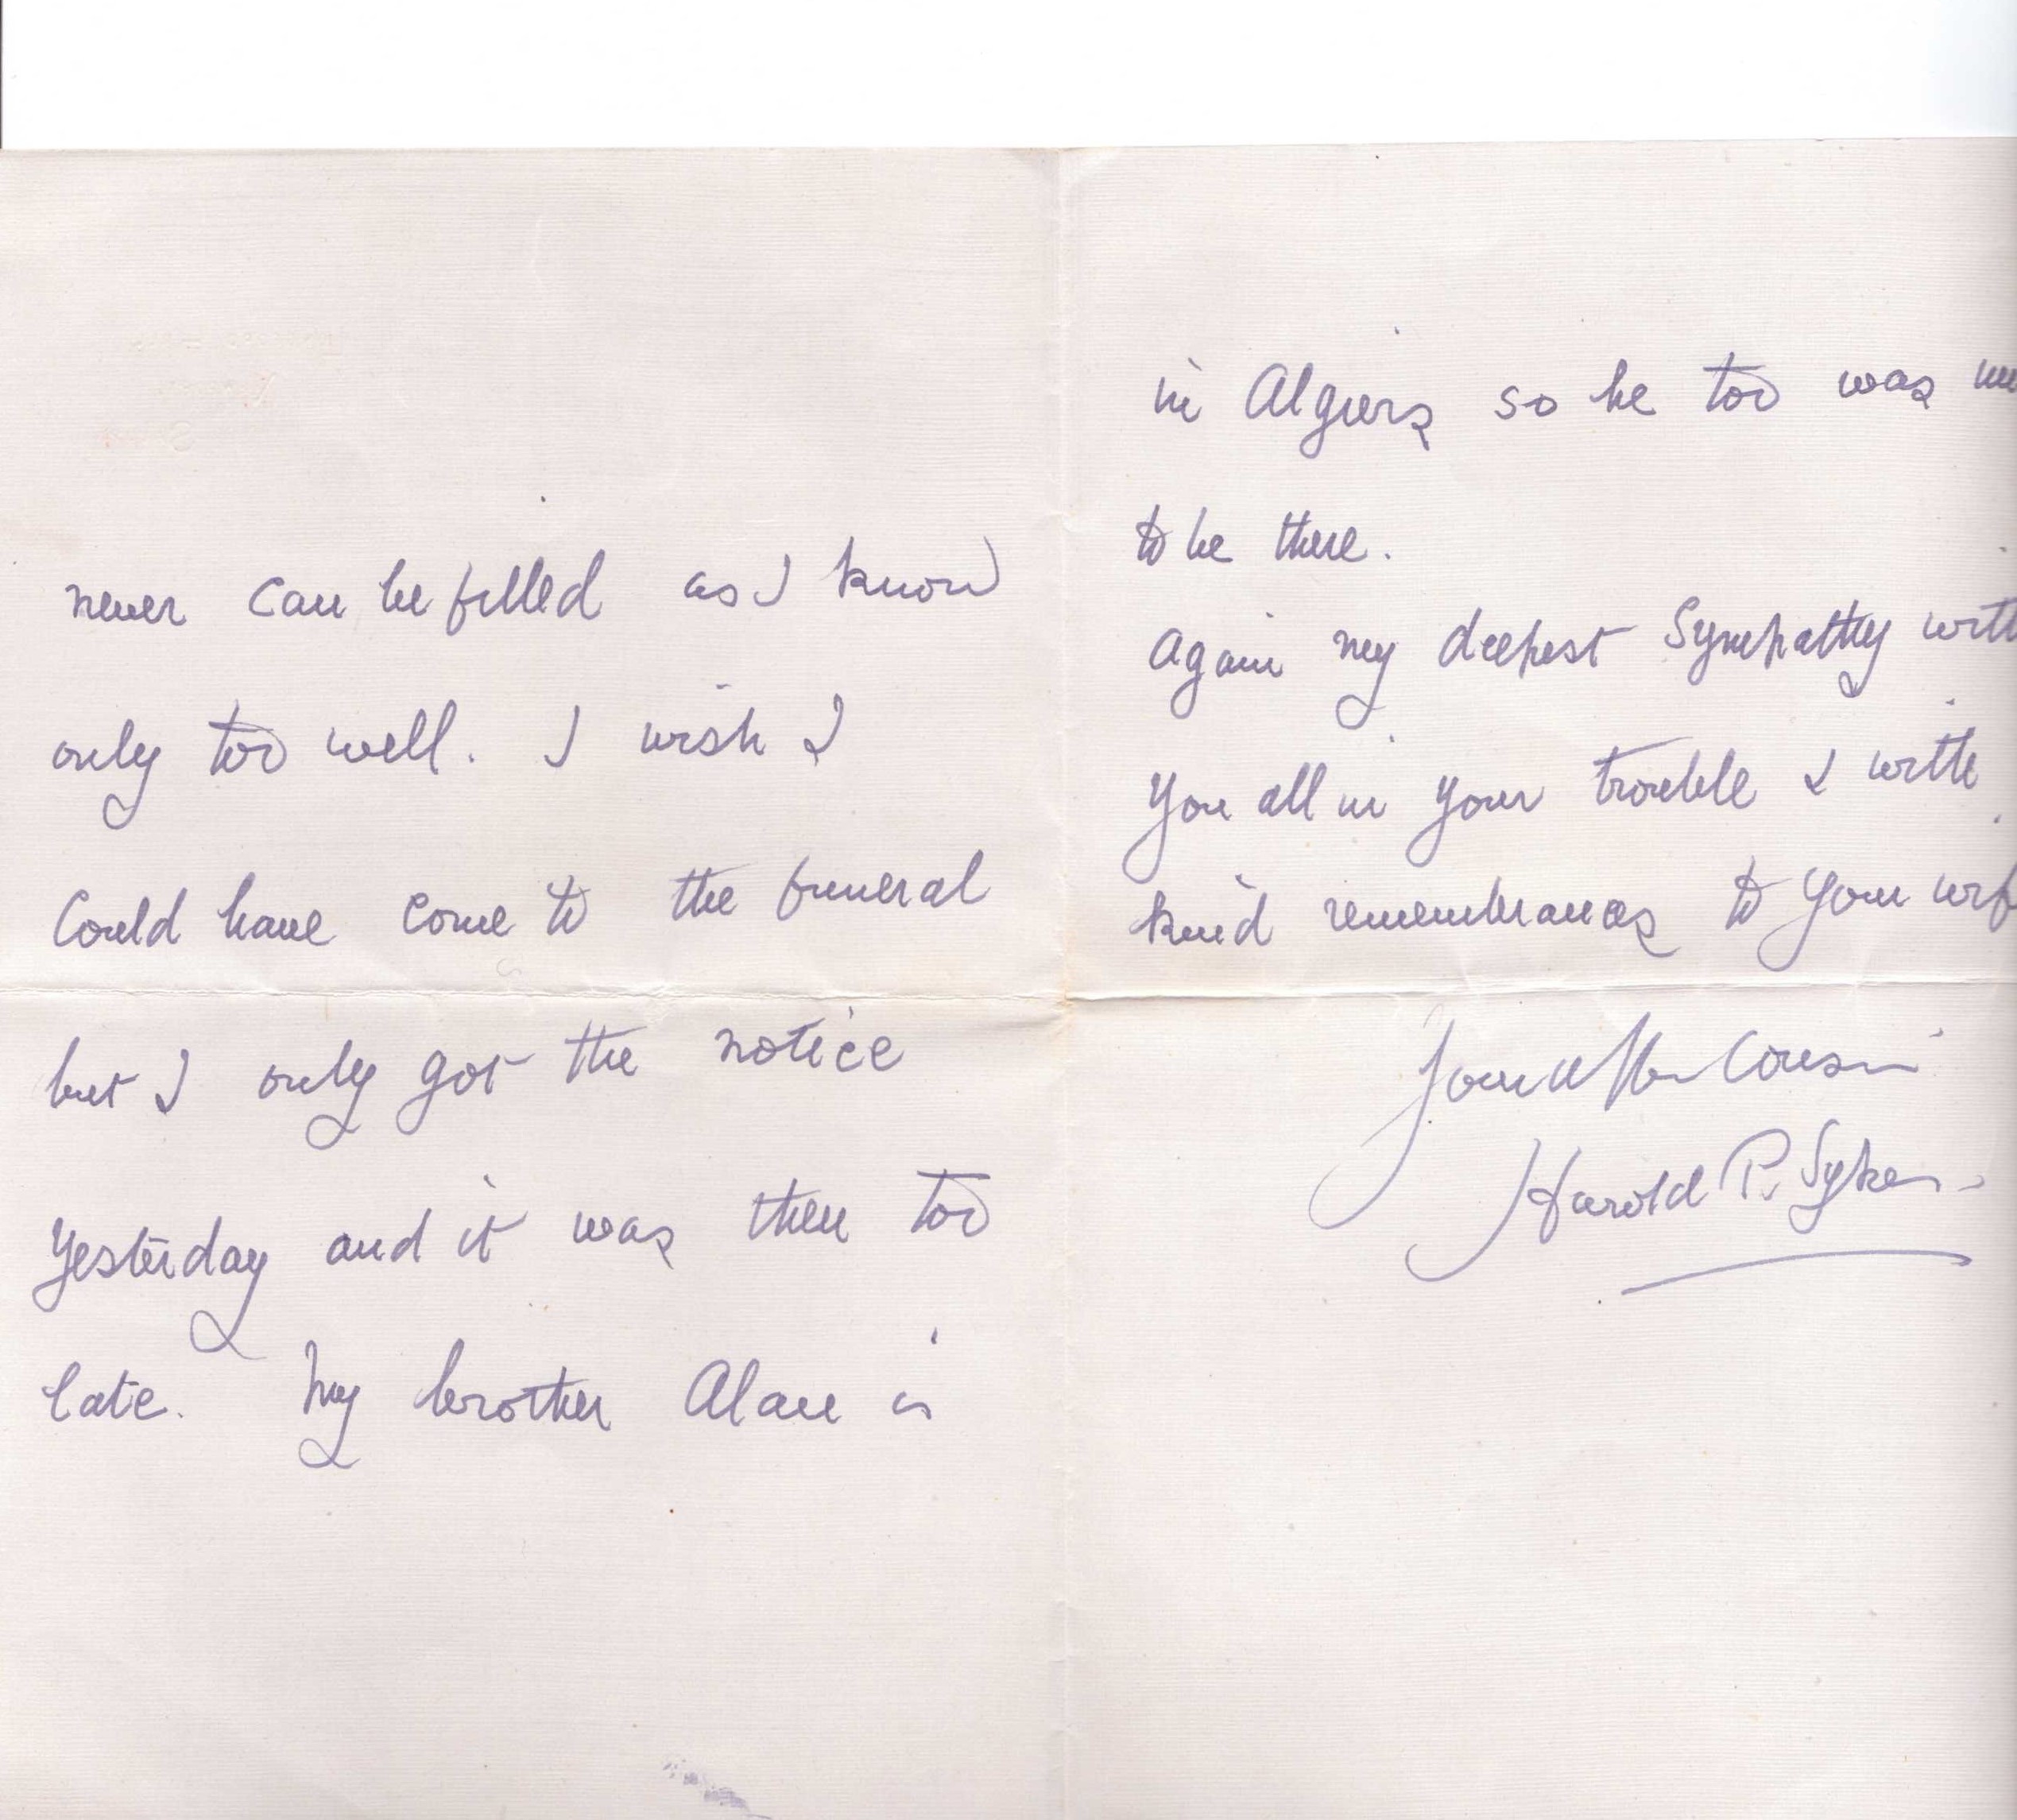 never can be filled as I know
only too well. I wish I
Could have come to the funeral
but I only got the notice
yesterday and it was then too
late. My brother Alan is
in Algiers so he too was
to be there.
Again my deepest Sympathy with
You all in your trouble & with
kind remembrances to your
Your affte Cousin
Harold P. Sykes.